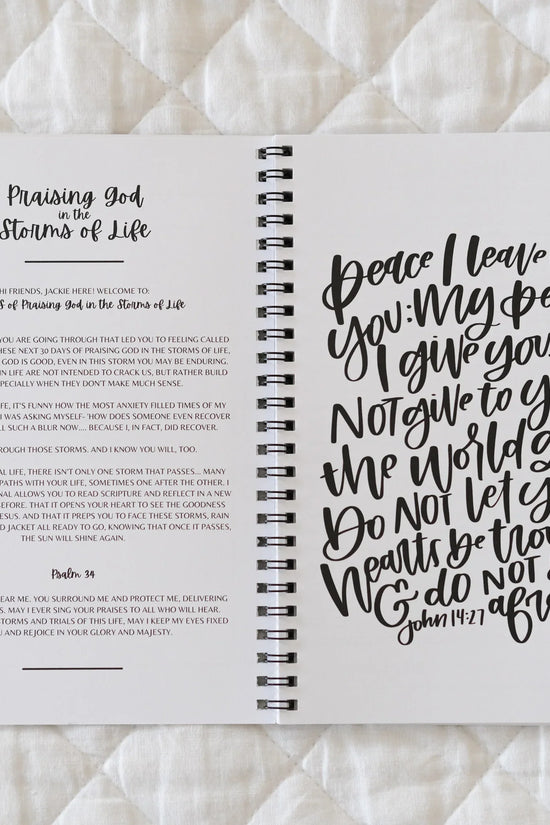 Praising God
in the
Storms of Life
HI FRIENDS, JACKIE HERE! WELCOME TO:
of Praising God in the Storms of Life
YOU ARE GOING THROUGH THAT LED YOU TO FEELING CALLED
THESE NEXT 30 DAYS OF PRAISING GOD IN THE STORMS OF LIFE,
GOD IS GOOD, EVEN IN THIS STORM YOU MAY BE ENDURING.
IN LIFE ARE NOT INTENDED TO CRACK US, BUT RATHER BUILD
WHEN THEY DON'T MAKE MUCH SENSE.
IT'S FUNNY HOW THE MOST ANXIETY FILLED TIMES OF MY
I WAS ASKING MYSELF- 'HOW DOES SOMEONE EVEN RECOVER
SUCH A BLUR NOW.... BECAUSE I, IN FACT, DID RECOVER.
THOSE STORMS. AND I KNOW YOU WILL, TOO.
LIFE, THERE ISN'T ONLY ONE STORM THAT PASSES... MANY
PATHS WITH YOUR LIFE, SOMETIMES ONE AFTER THE OTHER. I
ALLOWS YOU TO READ SCRIPTURE AND REFLECT IN A NEW
BEFORE. THAT IT OPENS YOUR HEART TO SEE THE GOODNESS
JESUS. AND THAT IT PREPS YOU TO FACE THESE STORMS, RAIN
JACKET ALL READY TO GO, KNOWING THAT ONCE IT PASSES,
THE SUN WILL SHINE AGAIN.
Psalm 34
ME. YOU SURROUND ME AND PROTECT ME, DELIVERING
MAY I EVER SING YOUR PRAISES TO ALL WHO WILL HEAR.
STORMS AND TRIALS OF THIS LIFE, MAY I KEEP MY EYES FIXED
AND REJOICE IN YOUR GLORY AND MAJESTY.
Peace I leave
you: My
I give you.
NOT give to
the world
Do NOT let
Hearts be
& do NOT
John 14:27